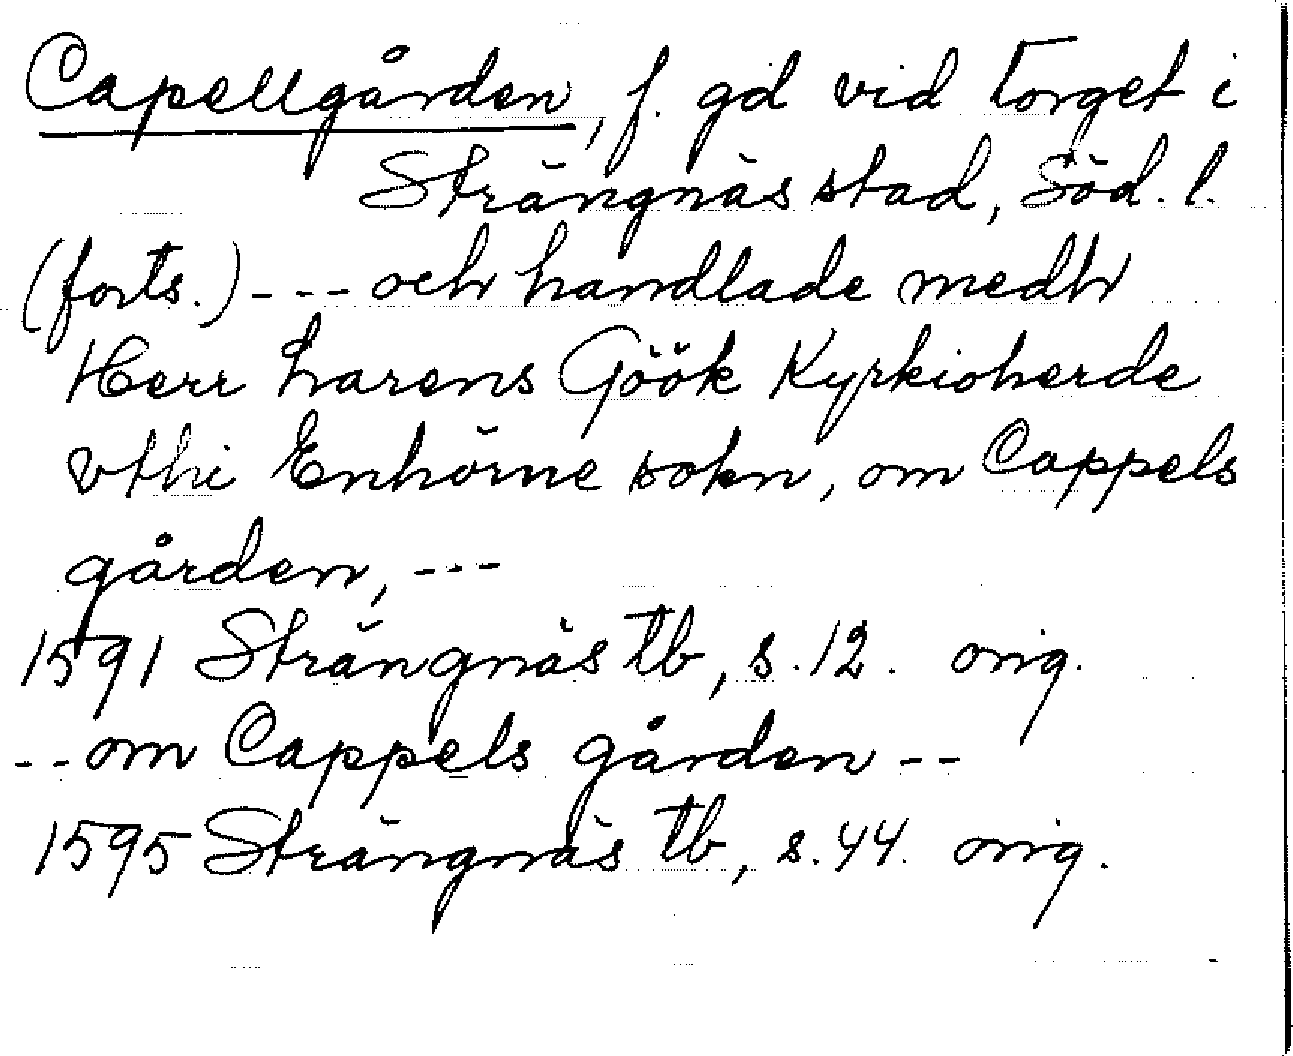 Capellgården, f. gd vid Torget i
Strängnäs stad, Söd. l.
(forts.) --- och handlade medh
Herr Larens Göök Kyrkioherde
vthi Enhörne sokn, om Cappels
gården, ---
1591 Strängnäs tb, s. 12. orig.
-- om Cappels gården --
1595 Strängnäs tb, s. 44. orig.